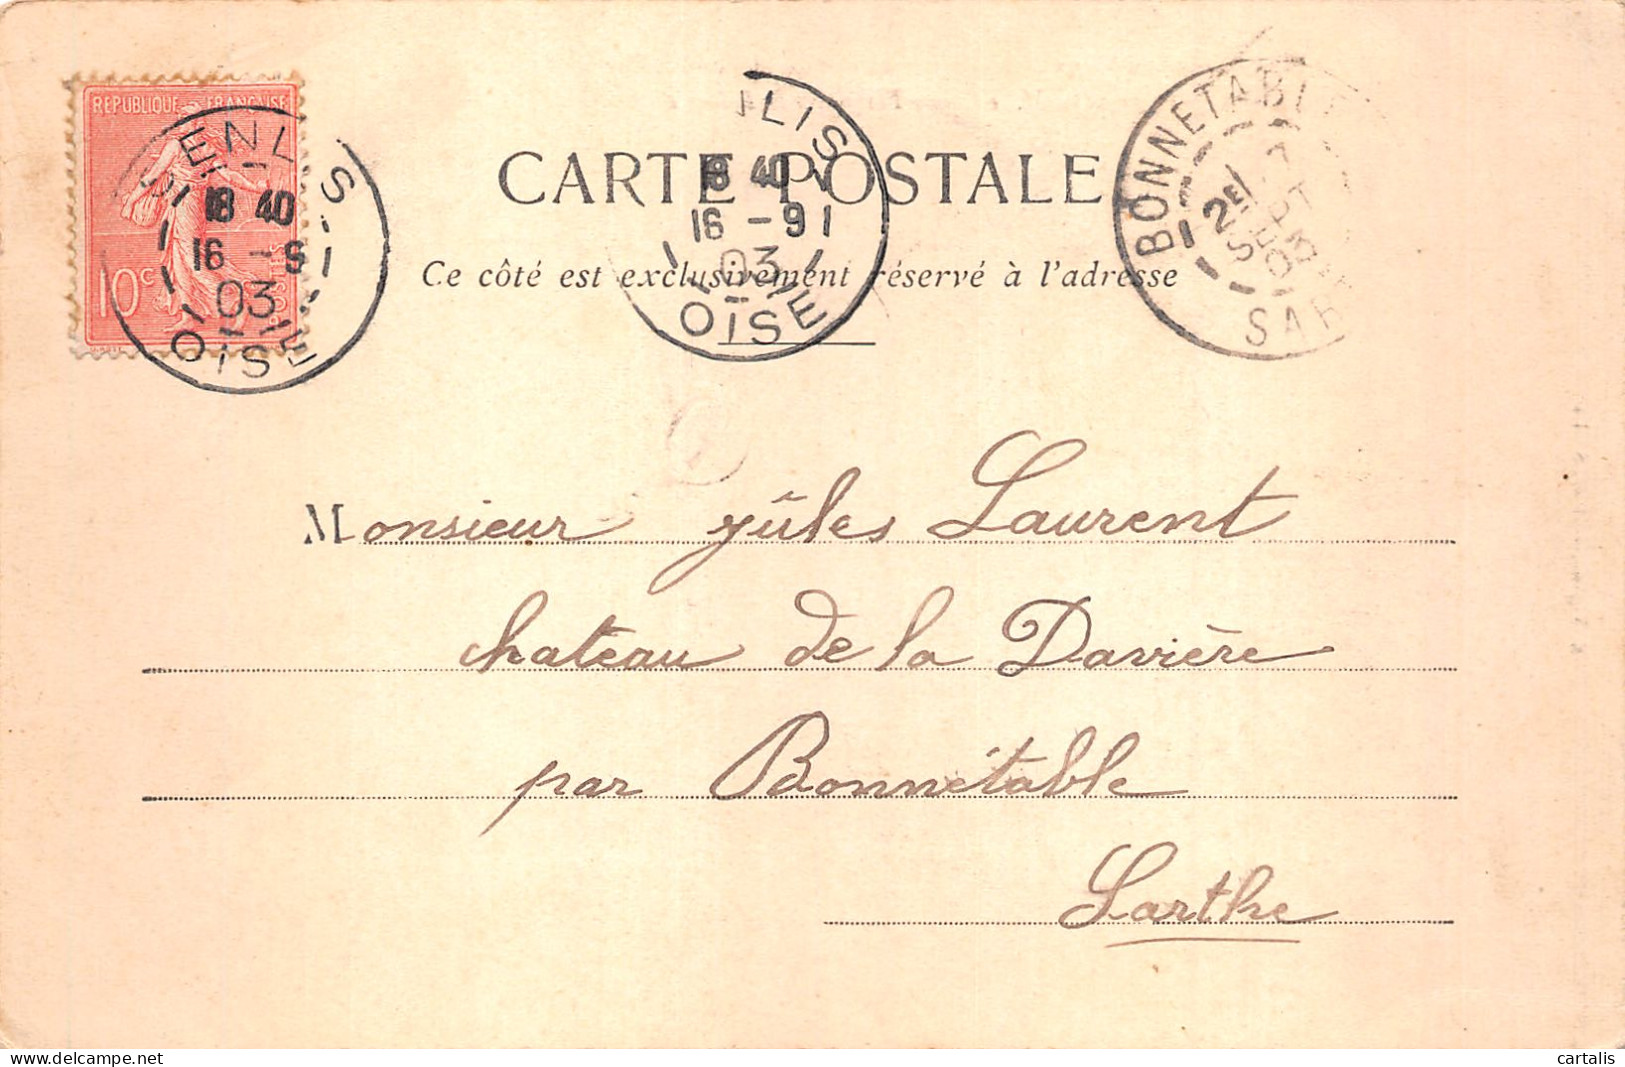 REPUBLIQUE FRANÇAISE
10c
POSTES
SENLIS
18 40
16 -9
03
OISE
18 40
16 -9
03
OISE
BONNETABLE
2E
SEPT
03
CARTE POSTALE
Ce côté est exclusivement réservé à l'adresse
Monsieur Jûles Laurent
chateau de la Davière
par Bonnétable
Sarthe
cartalis